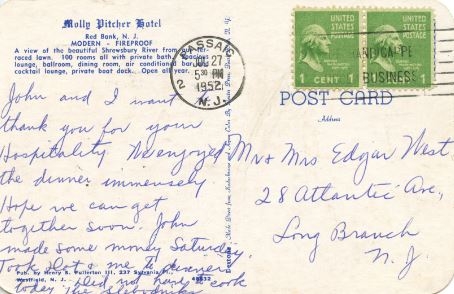 Molly Pitcher Hotel
Red Bank, N. J.
MODERN - FIREPROOF
A view of the beautiful Shrewsbury River from our ter-
raced lawn. 100 rooms all with private bath. Spacious
lounge, ballroom, dining room, air conditioned bar
cocktail lounge, private boat dock. Open all year.
John and I want
thank you for your
Hospitality. We enjoyed
the dinner immensely
Hope we can get
together soon. John
made some money Saturday.
Took & me to dinner
Did not have cook
today the
Pub. by Henry S. Fullerton III, 237
Westfield, N. J.
49832
PASSAIC
27
5 30 PM
1952
N. J.
2
UNITED STATES POSTAGE
1 CENT 1
UNITED STATES POSTAGE
1 CENT 1
BUSINESS
POST CARD
Address
Mr & Mrs Edgar West
28 Atlantic Ave,
Long Branch
N. J.